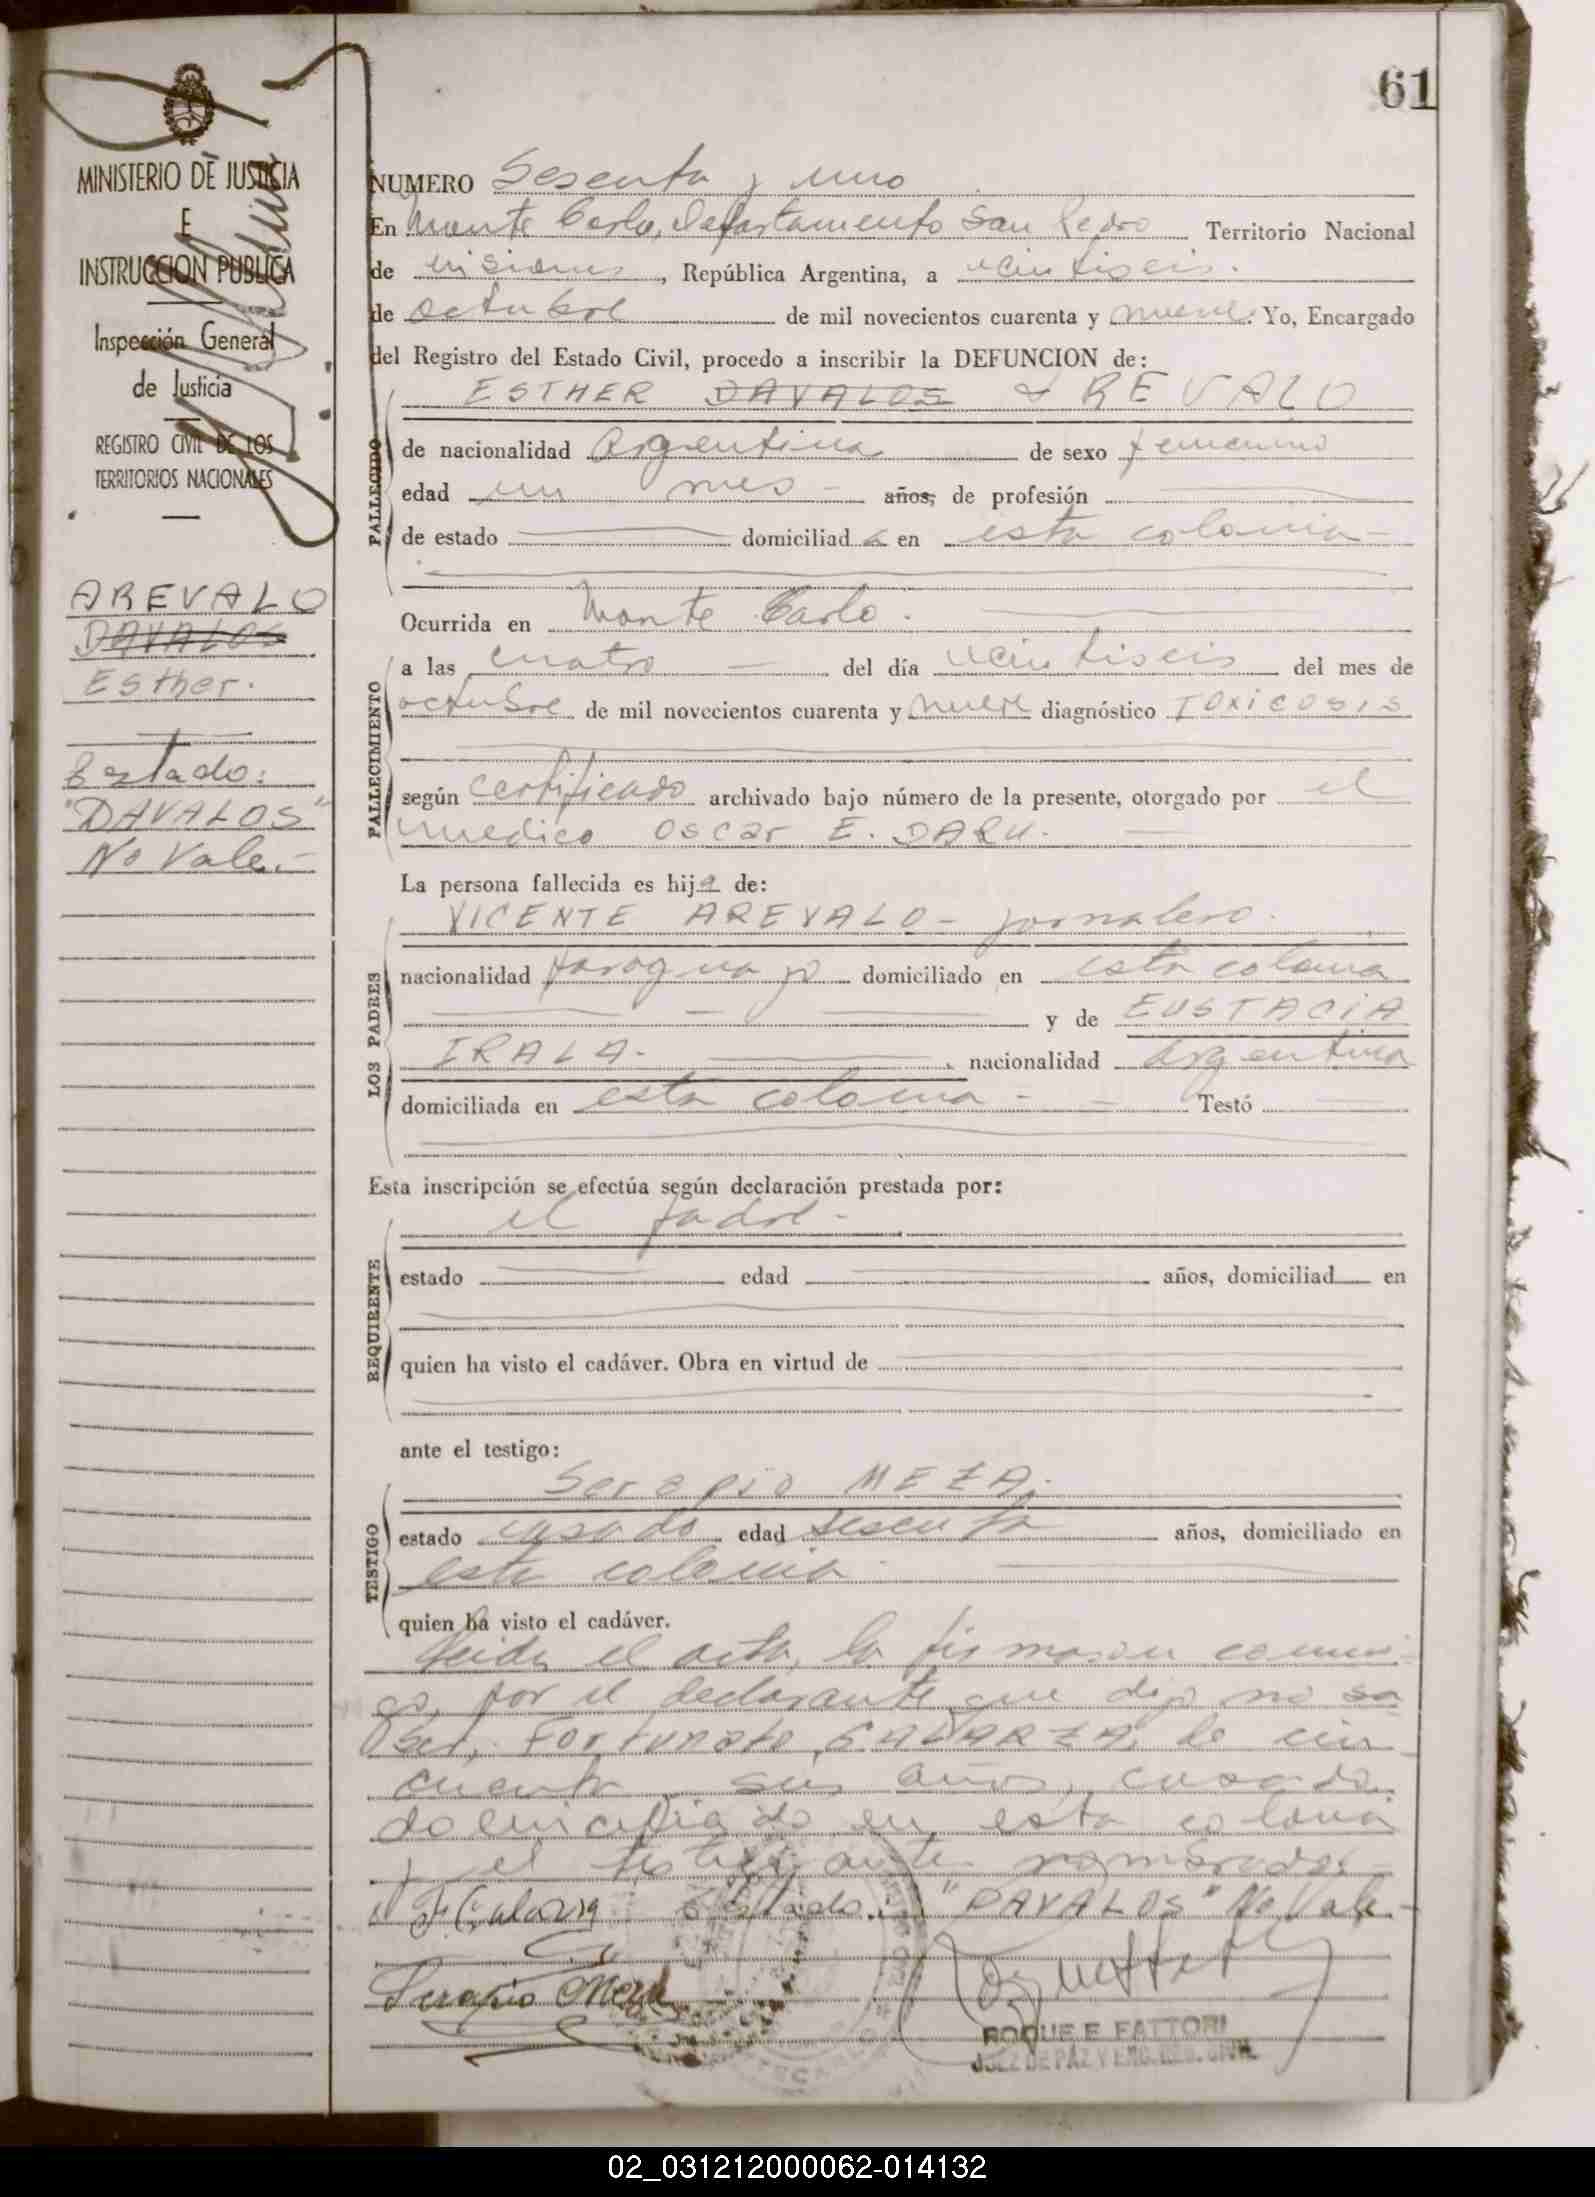 61
MINISTERIO DE JUSTICIA
E
INSTRUCCION PUBLICA
Inspección General
de Justicia
REGISTRO CIVIL DE LOS
TERRITORIOS NACIONALES
AREVALO
DAVALOS
Esther.
Testado:
"DAVALOS"
No Vale.-
NUMERO Sesenta y uno
En Monte Carlo, Departamento San Pedro Territorio Nacional
de Misiones, República Argentina, a veintiseis.
de octubre de mil novecientos cuarenta y nueve. Yo, Encargado
del Registro del Estado Civil, procedo a inscribir la DEFUNCION de:
ESTHER DAVALOS AREVALO
FALLECIDO
de nacionalidad Argentina de sexo femenino
edad un mes - años, de profesión
de estado domiciliad a en esta colonia-
Ocurrida en Monte Carlo.
FALLECIMIENTO
a las cuatro - del día veintiseis del mes de
octubre de mil novecientos cuarenta y nueve diagnóstico TOXICOSIS
según certificado archivado bajo número de la presente, otorgado por el
medico Oscar E. DARU.
La persona fallecida es hija de:
LOS PADRES
VICENTE AREVALO - jornalero.
nacionalidad paraguayo domiciliado en esta colonia
y de EUSTACIA
IRALA. , nacionalidad argentina
domiciliada en esta colonia - Testó
Esta inscripción se efectúa según declaración prestada por:
REQUIRENTE
el padre-
estado edad años, domiciliad en
quien ha visto el cadáver. Obra en virtud de
ante el testigo:
TESTIGO
Serapio MEZA.
estado casado edad sesenta años, domiciliado en
esta colonia
quien ha visto el cadáver.
Leida el acta, la firmaron conmi-
go, por el declarante que dijo no sa
ber, Fortunato GALARZA, de cin
cuenta seis años, casado
domiciliado en esta colonia
y el testigo ante nombrado.-
F Galarza Testado: "DAVALOS" No Vale.-
Serapio Meza
ROQUE E. FATTORI
JUEZ DE PAZ Y ENC. REG. CIVIL
02_031212000062-014132